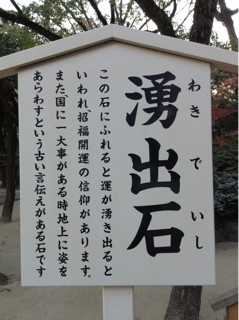 湧出石
わきでいし
この石にふれると運が湧き出ると
いわれ招福開運の信仰があります。
また国に一大事がある時地上に姿を
あらわすという古い言伝えがある石です